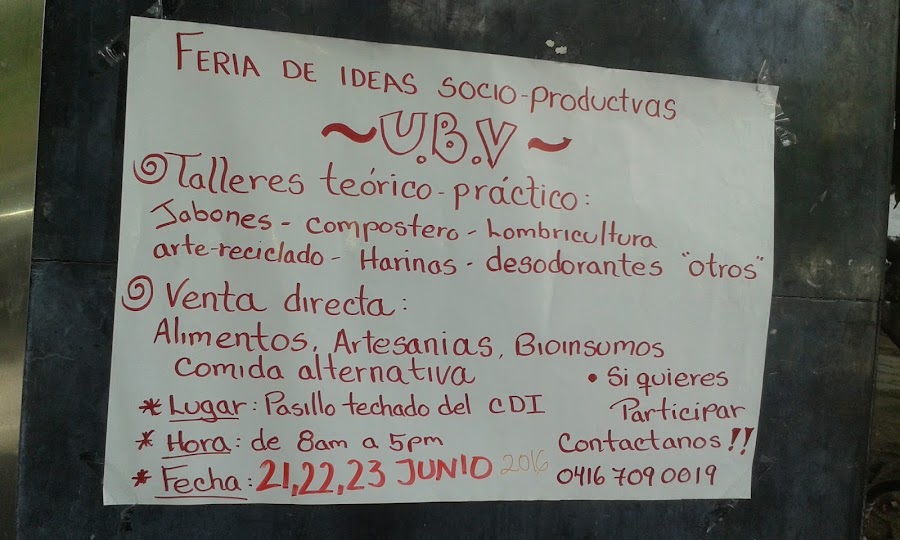 FERIA DE IDEAS SOCIO-PRODUCTVAS
~U.B.V~
Talleres teórico-práctico:
Jabones - compostero - Lombricultura
arte-reciclado - Harinas - desodorantes "otros"
Venta directa:
Alimentos, Artesanias, Bioinsumos
Comida alternativa
* Lugar: Pasillo techado del CDI
* Hora: de 8am a 5pm
* Fecha: 21,22,23 JUNIO 2016
• Si quieres
Participar
Contactanos!!
0416 709 0019